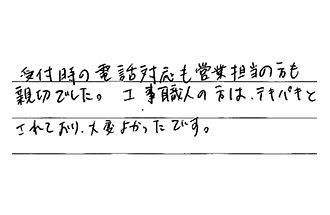 受付時の電話対応も営業担当の方も
親切でした。 工事職人の方は、テキパキと
されており、大変よかったです。